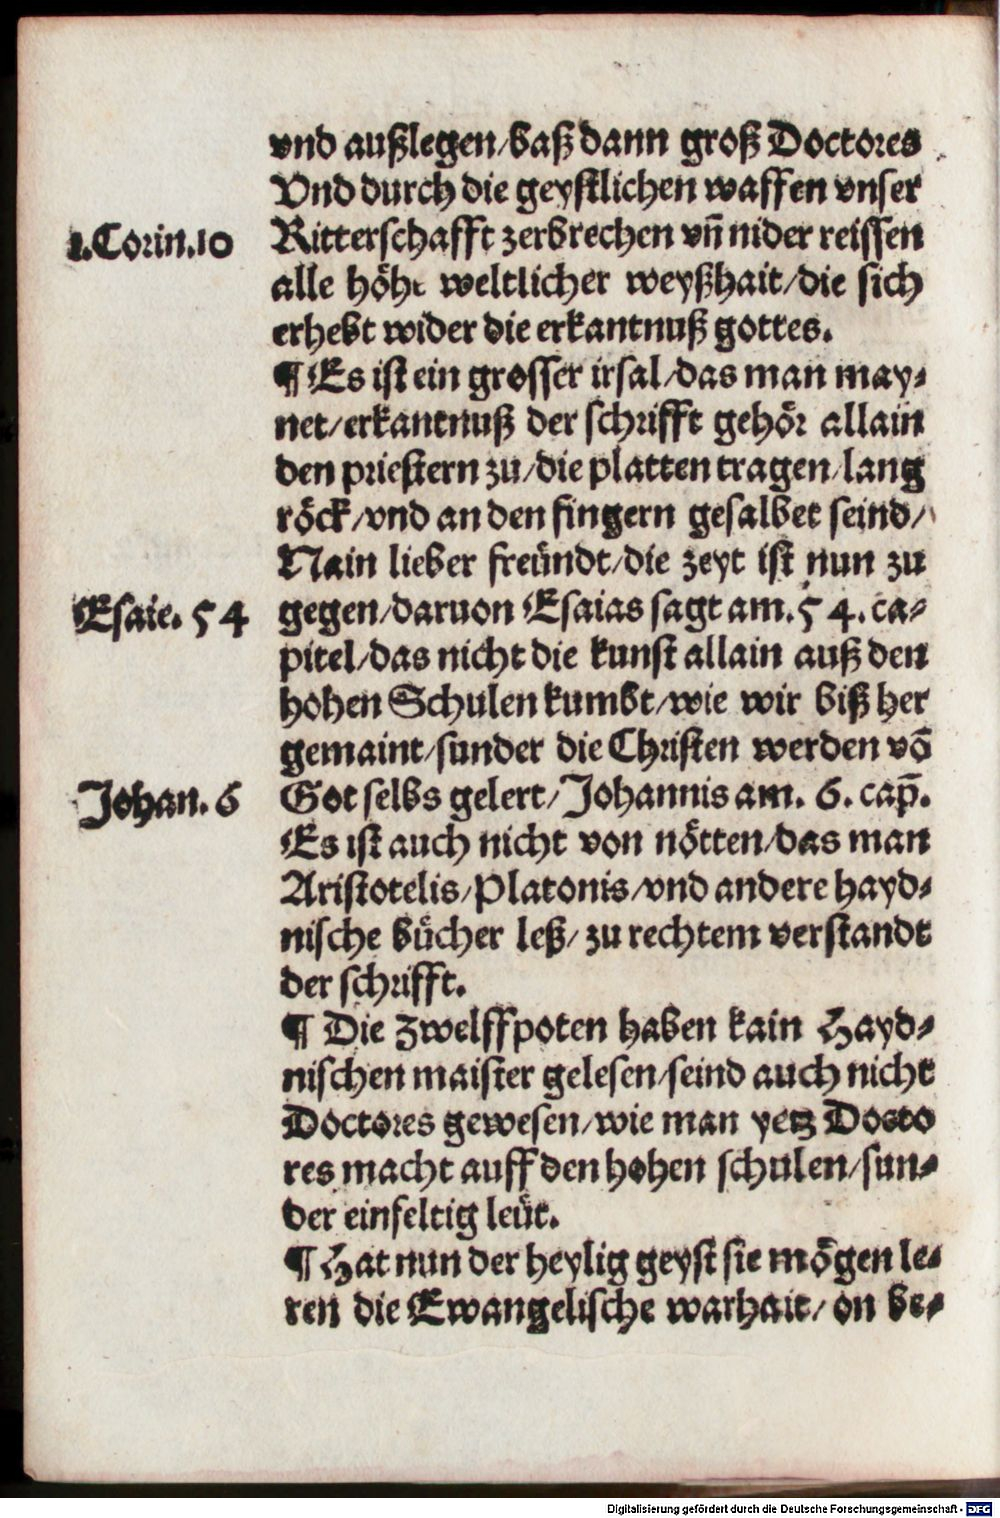 vnd außlegen/baß dann groß Doctores
Vnd durch die geystlichen waffen vnser
1.Corin.10
Ritterschafft zerbrechen vñ nider reissen
alle höhe weltlicher weyßhait/die sich
erhebt wider die erkantnuß gottes.
¶ Es ist ein grosser irsal/das man may⸗
net/erkantnuß der schrifft gehör allain
den priestern zu/die platten tragen/lang
röck/vnd an den fingern gesalbet seind/
Nain lieber freündt/die zeyt ist nun zu
Esaie. 54
gegen/daruon Esaias sagt am.54.ca⸗
pitel/das nicht die kunst allain auß den
hohen Schulen kumbt/wie wir biß her
gemaint/sunder die Christen werden võ
Johan. 6
Got selbs gelert/Johannis am. 6. cap̄.
Es ist auch nicht von nötten/das man
Aristotelis/Platonis/vnd andere hayd⸗
nische bücher leß/zu rechtem verstandt
der schrifft.
¶ Die zwelffpoten haben kain Hayd⸗
nischen maister gelesen/seind auch nicht
Doctores gewesen/wie man yetz Docto
res macht auff den hohen schulen/sun⸗
der einfeltig leüt.
¶ Hat nun der heylig geyst sie mögen le⸗
ren die Ewangelische warhait/on be⸗
Digitalisierung gefördert durch die Deutsche Forschungsgemeinschaft - DFG